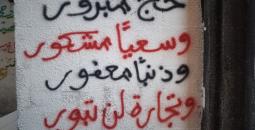 حج مبرور
وسعيًا مشكور
وذنبًا مغفور
وتجارة لن تبور